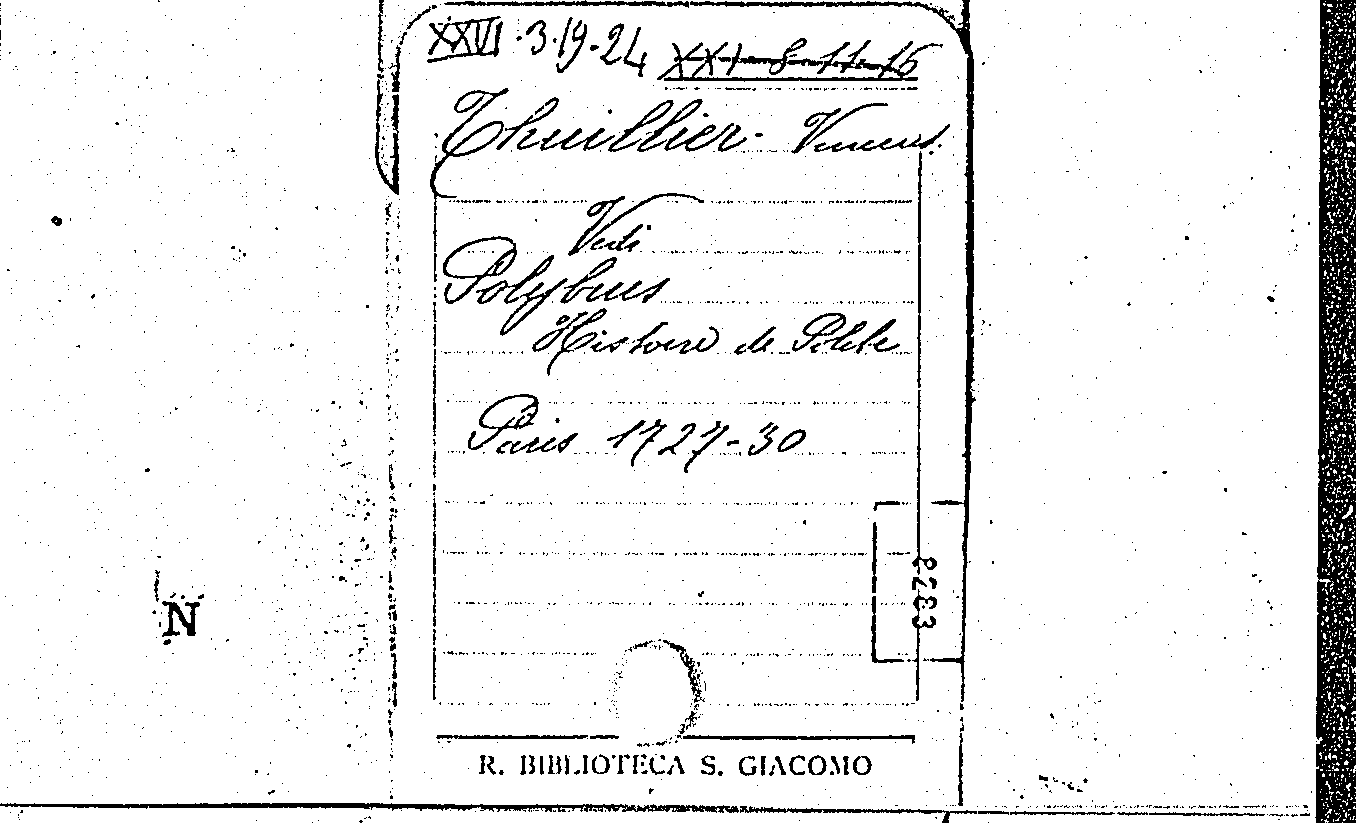 XXVI·3·19-24 XXI-8-11-15
Thuillier - Vincent.
Vedi
Polybius
Histoire de Polibe
Paris 1727-30
8283
N
R. BIBLIOTECA S. GIACOMO